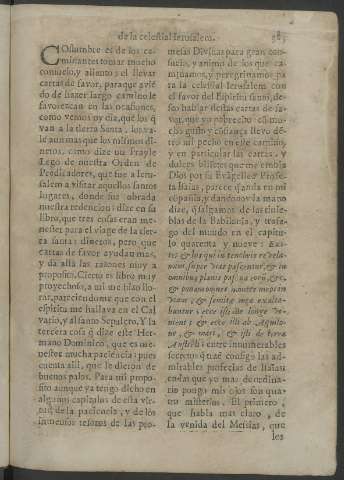 de la celestial Ierusalem.
COstumbre es de los ca-
minantes tomar mucho
consuelo, y aliento; el llevar
cartas de favor, para que avié
do de hazer largo camino le
favorezcan en las ocasiones,
como vemos oy dia, que los q̃
van a la tierra Santa, los va-
le aun mas que los mismos di-
neros, como dize un Frayle
Lego de nuestra Orden de
Predicadores, que fue a Ieru-
salem a visitar aquellos santos
lugares, donde fue obrada
nuestra redencion: dize en su
libro, que tres cosas eran me-
nester para el viage de la tier-
ra santa: dineros, pero que
cartas de favor ayudan mas,
y da allá las razones muy a
proposito. Cierto es libro muy
provechoso, a mi me hizo llo-
rar, pareciendome que con el
espiritu me hallava en el Cal
vario, y al santo Sepulcro. Y la
tercera cosa q̃ dize este Her-
mano Dominico, que es me-
nester mucha paciencia: pues
cuenta allí, que le dieron de
buenos palos. Para mi propo-
sito aunque ya tengo dicho en
algunos capitulos de esta vir-
tud de la paciencia, y de los
inmensos tesoros de las pro-
mesas Divinas para gran con-
suelo, y animo de los que ca-
minamos, y peregrinamos pa
ra la celestial Ierusalem con
el favor del Espiritu santo, de-
seo hablar destas cartas de fa-
vor, que yo pobrecito có mu-
cho gusto y cófiança llevo dé-
tro mi pecho en este camino,
y en particular las cartas, y
dulces billetes que me embia
Dios por su Evangelico Profe-
ta Isaias, parece q̃ anda en mi
compañia, y dandome la mano
dize, q̃ salgamos de las tinie-
blas de la Babilonia, y trasfe-
go del mundo en el capitulo
quarenta y nueve: Exi-
te, & his qui in tenebris revela-
mini, super vias pascentur, & in
omnibus planis pascua eorũ, &c.
& ponam omnes montes meos in
viam, & semitæ meæ exalta-
buntur; ecce isti de longe ve-
nient; & ecce isti ab Aquilo-
ne, & mari, & isti de terra
Australi: entre innumerables
secretos q̃ traé consigo las ad-
mirables profecias de Isaias
en las que yo mas de ordina-
rio pongo mis ojos son qua-
tro misterios. El primero,
que habla mas claro, de
la venida del Messias, que
los